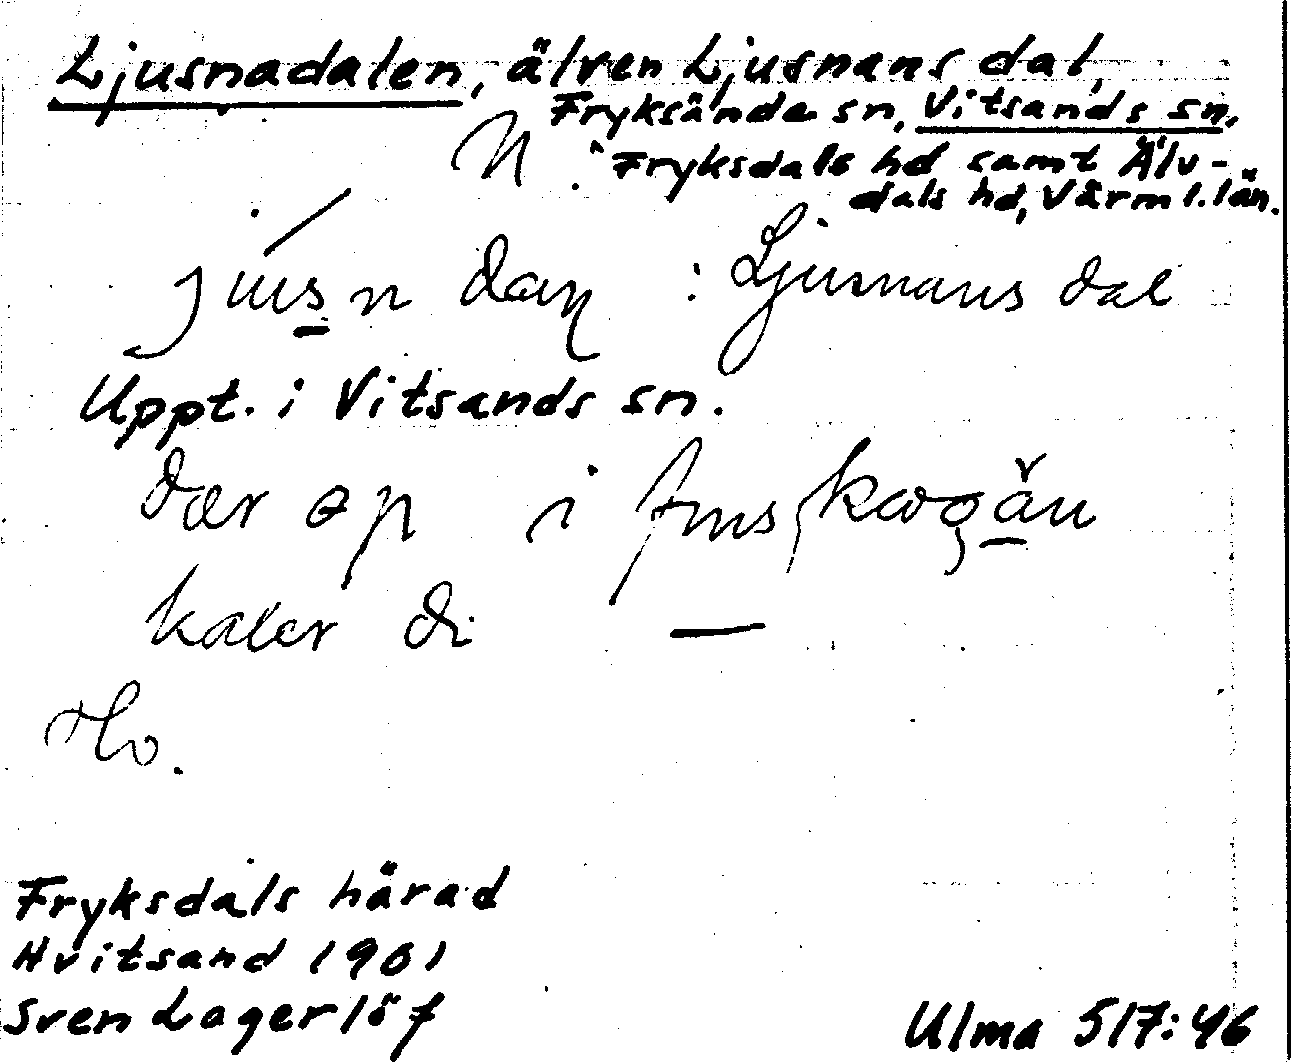 Ljusnadalen, älven Ljusnans dal,
Fryksände sn, Vitsands sn,
N. Fryksdals hd samt Älv-
dals hd, Värml. län.
: Ljusnans dal
Uppt. i Vitsands sn.
dær i
kaler di —
Ho.
Fryksdals härad
Hvitsand 1901
Sven Lagerlöf
Ulma 517:46